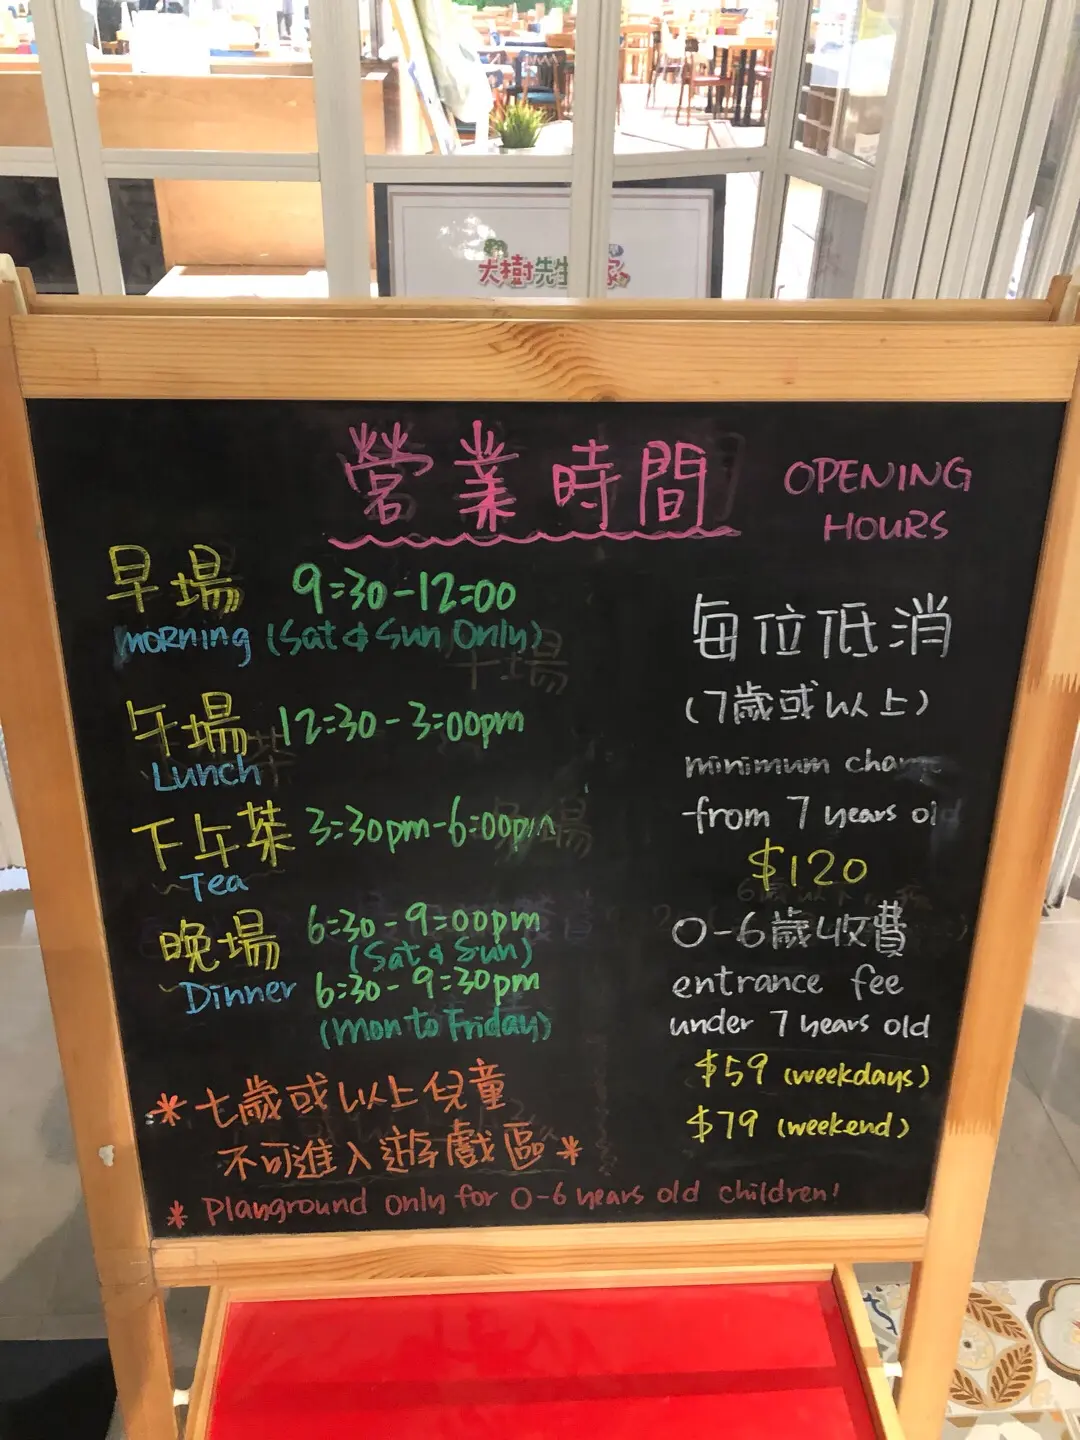 大樹先生 家
營業時間 OPENING HOURS
早場 9:30-12:00
morning (Sat & Sun Only)
午場 12:30-3:00pm
Lunch
下午茶 3:30pm-6:00pm
Tea
晚場 6:30-9:00pm
(Sat & Sun)
Dinner 6:30-9:30pm
(Mon to Friday)
*七歲或以上兒童
不可進入遊戲區*
* Playground only for 0-6 years old children!
每位低消
(7歲或以上)
minimum charge
from 7 years old
$120
0-6歲收費
entrance fee
under 7 years old
$59 (weekdays)
$79 (weekend)